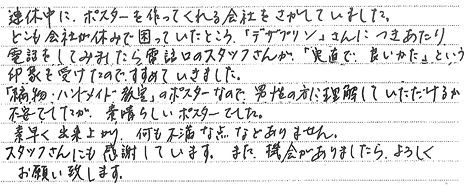 連休中に、ポスターを作ってくれる会社をさがしていました。
どこも会社が休みで困っていたところ、「デザプリン」さんにつきあたり
電話をしてみましたら電話口のスタッフさんが、「実直で、良いかた」という
印象を受けたのですすめていきました。
「編物・ハンドメイド教室」のポスターなので、男性の方に理解していただけるか
不安でしたが、素晴らしいポスターでした。
素早く出来上がり、何も不満な点などありません。
スタッフさんにも感謝しています。また、機会がありましたら、よろしく
お願い致します。